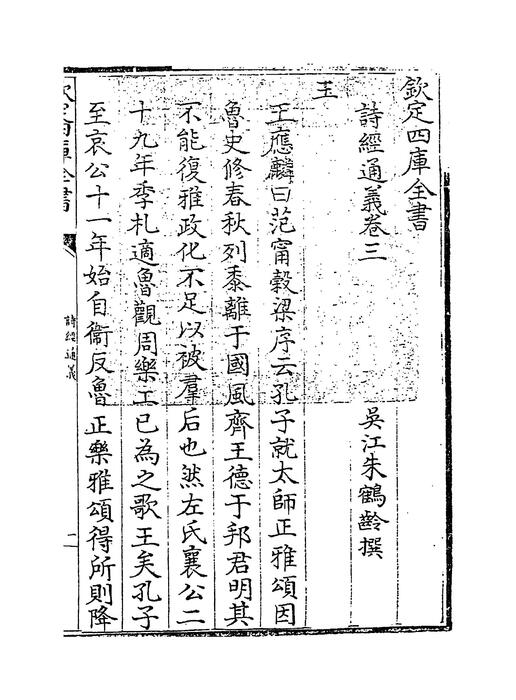 欽定四庫全書
詩經通義卷三
吳江朱鶴齡撰
王
王應麟曰范甯穀梁序云孔子就太師正雅頌因
魯史修春秋列黍離于國風齊王德于邦君明其
不能復雅政化不足以被羣后也然左氏襄公二
十九年季札適魯觀周樂工已為之歌王矣孔子
至哀公十一年始自衞反魯正樂雅頌得所則降
欽定四庫全書
詩經通義